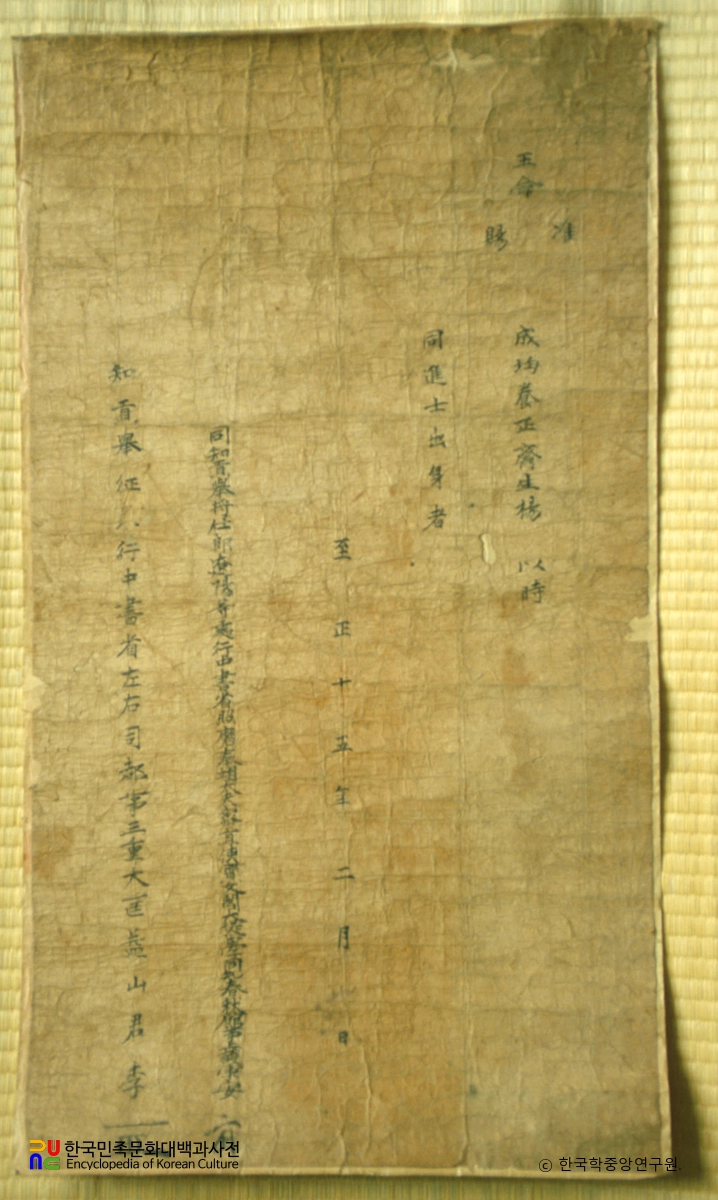 准
王命
成均養正齋生楊 以時
賜
同進士出身者
至正十五年二月 日
同知貢擧將仕郎遼陽等處行中書省照磨奉翊大夫 寶文閣大提學同知春秋館事 安
知貢擧征 行中書省左右司都事三重大匡益山君李
한국민족문화대백과사전
Encyclopedia of Korean Culture
© 한국학중앙연구원.